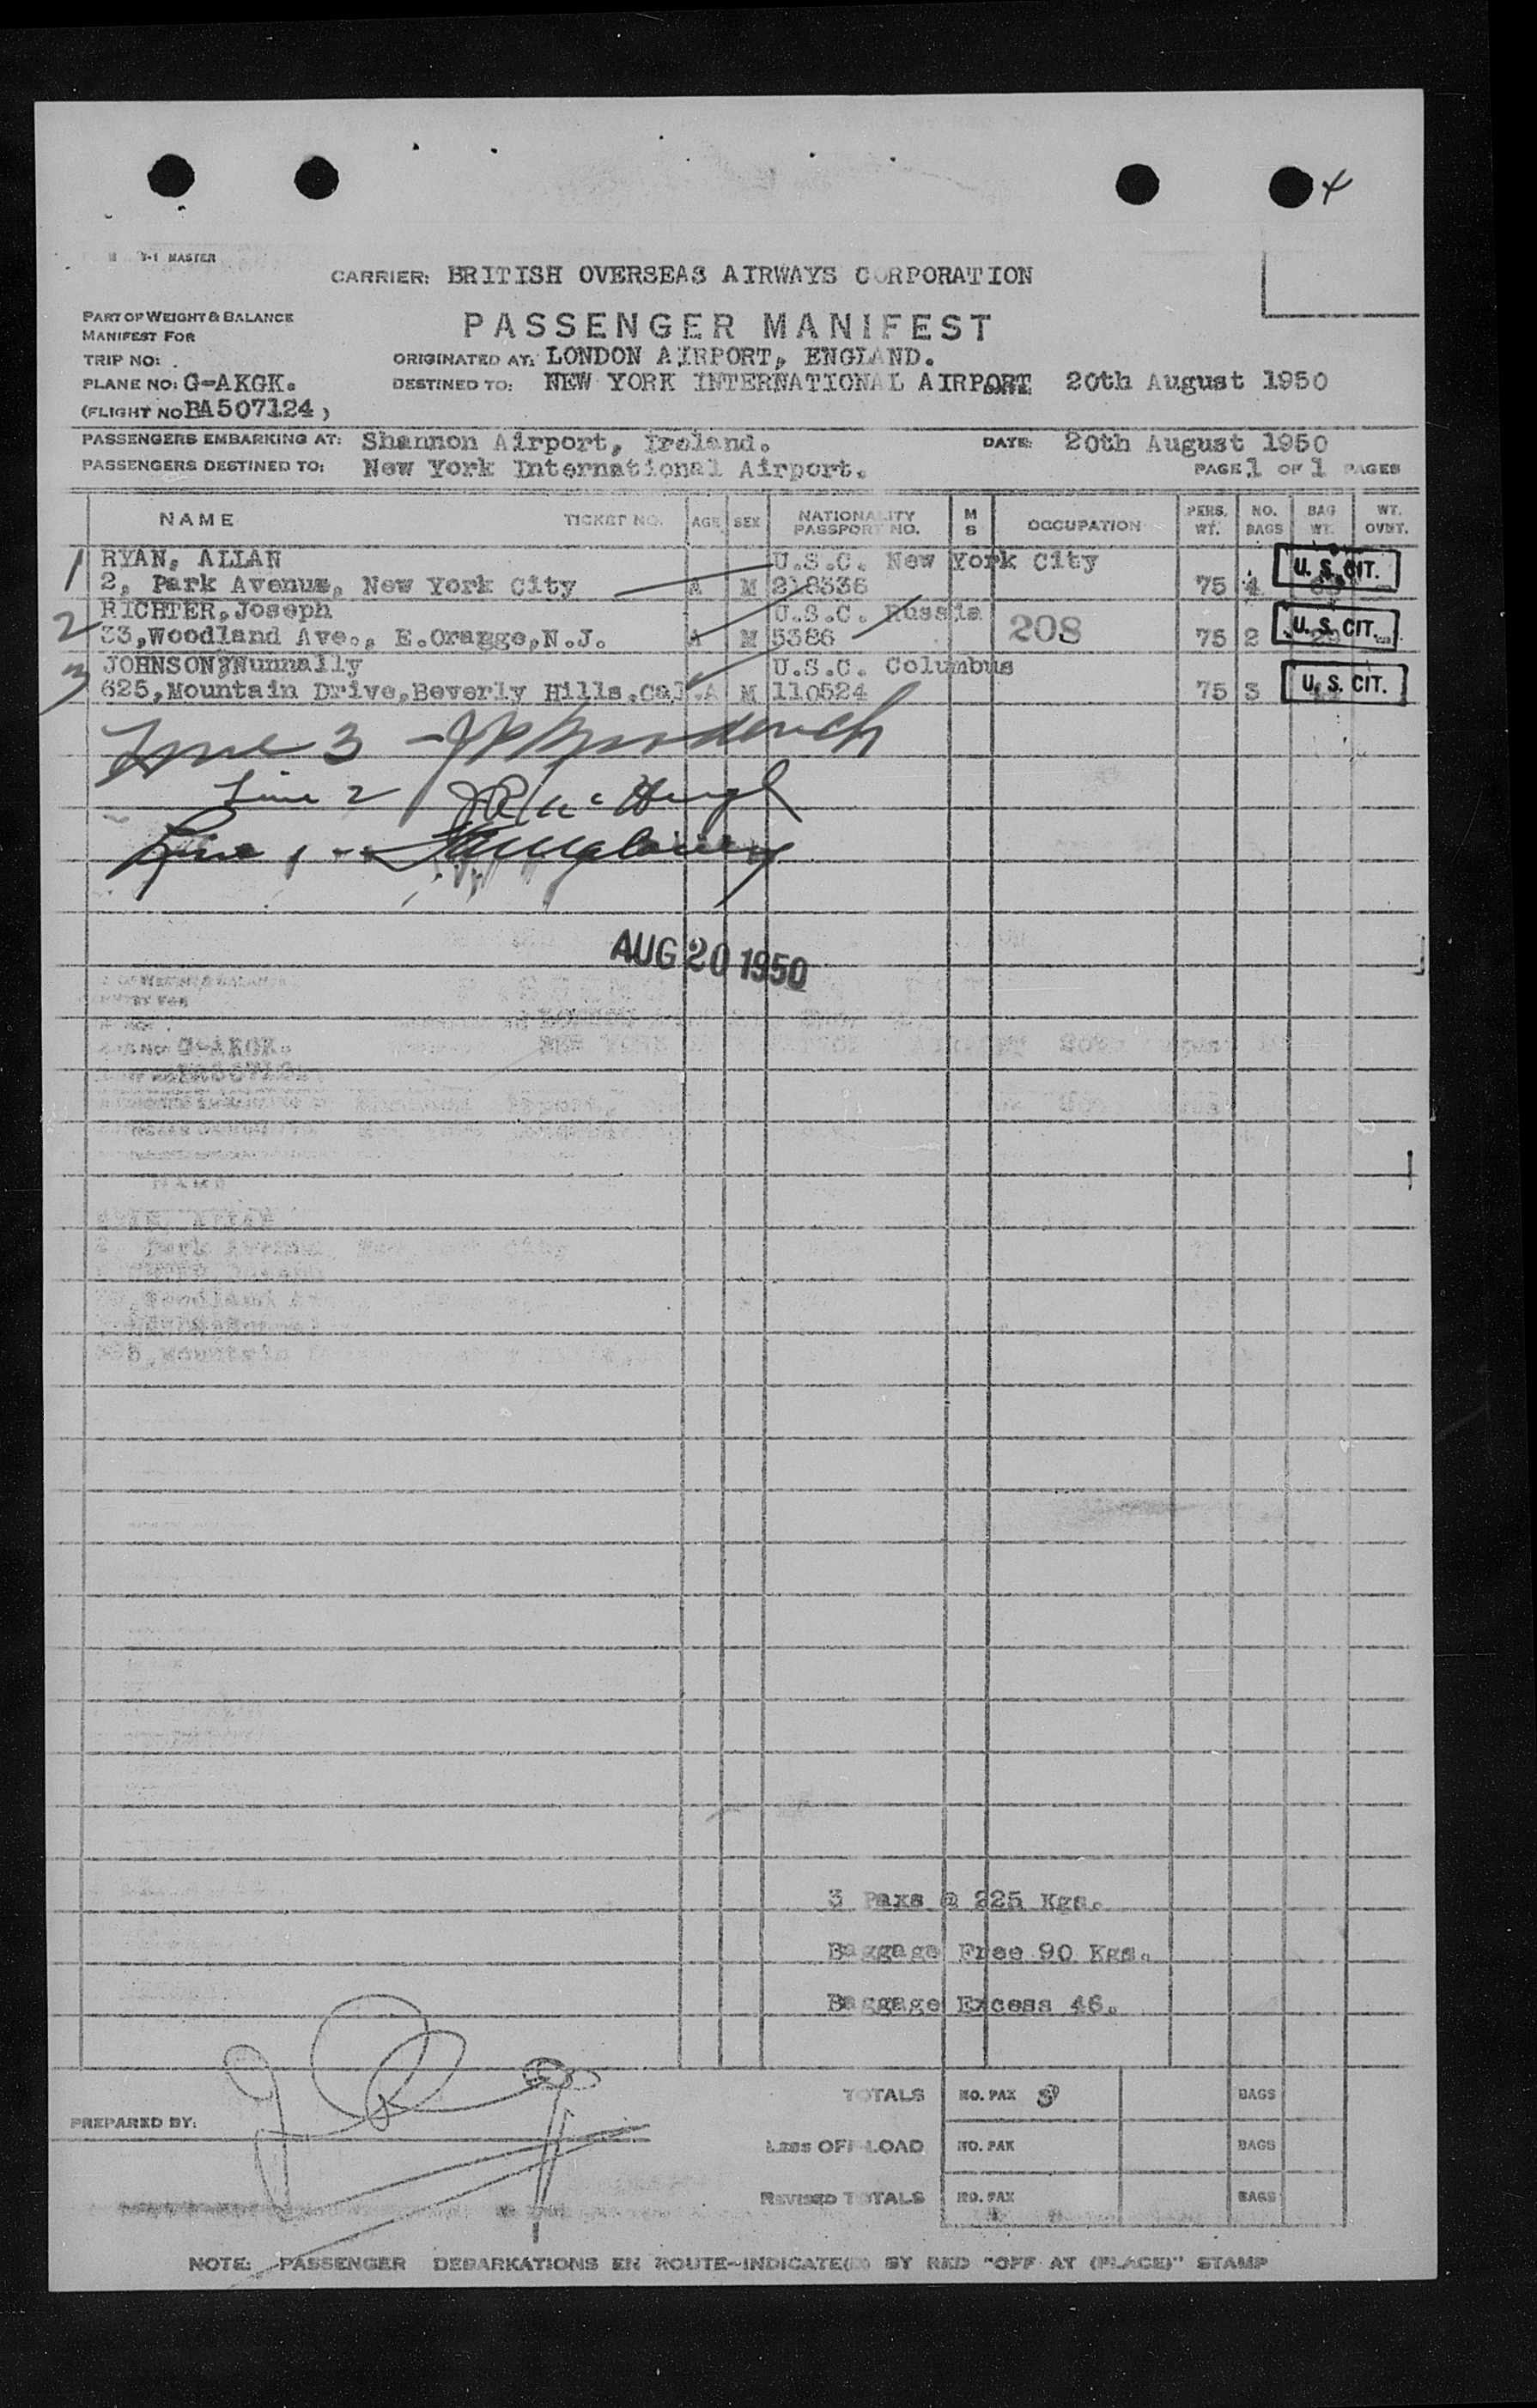 4
MASTER
CARRIER: BRITISH OVERSEAS AIRWAYS CORPORATION
PART OF WEIGHT & BALANCE
MANIFEST FOR
PASSENGER MANIFEST
TRIP NO:
ORIGINATED AT: LONDON AIRPORT, ENGLAND.
PLANE NO: G-AKGK.
DESTINED TO: NEW YORK INTERNATIONAL AIRPORT DATE: 20th August 1950
(FLIGHT NO BA507124)
PASSENGERS EMBARKING AT: Shannon Airport, Ireland. DATE: 20th August 1950
PASSENGERS DESTINED TO: New York International Airport. PAGE 1 OF 1 PAGES
NAME TICKET NO. AGE SEX NATIONALITY PASSPORT NO. M S OCCUPATION PERS. WT. NO. BAGS BAG WT. WT. OVNT.
1 RYAN, ALLAN U.S.C. New York City
2, Park Avenue, New York City A M 218336 75 4 U.S. CIT.
2 RICHTER, Joseph U.S.C. Russia
33, Woodland Ave., E.Orange, N.J. A M 5386 208 75 2 U.S. CIT.
3 JOHNSON, Nunnally U.S.C. Columbus
625, Mountain Drive, Beverly Hills, Cal. A M 110524 75 3 U.S. CIT.
Line 3 -
Line 2 McHugh
Line 1 --
AUG 20 1950
G-AKGK.
NAME
3 Paxs @ 225 Kgs.
Baggage Free 90 Kgs.
Baggage Excess 46.
TOTALS NO. PAX 3 BAGS
PREPARED BY:
Less OFF-LOAD NO. PAX BAGS
REVISED TOTALS NO. PAX BAGS
NOTE: PASSENGER DEBARKATIONS EN ROUTE-INDICATE(D) BY RED "OFF AT (PLACE)" STAMP